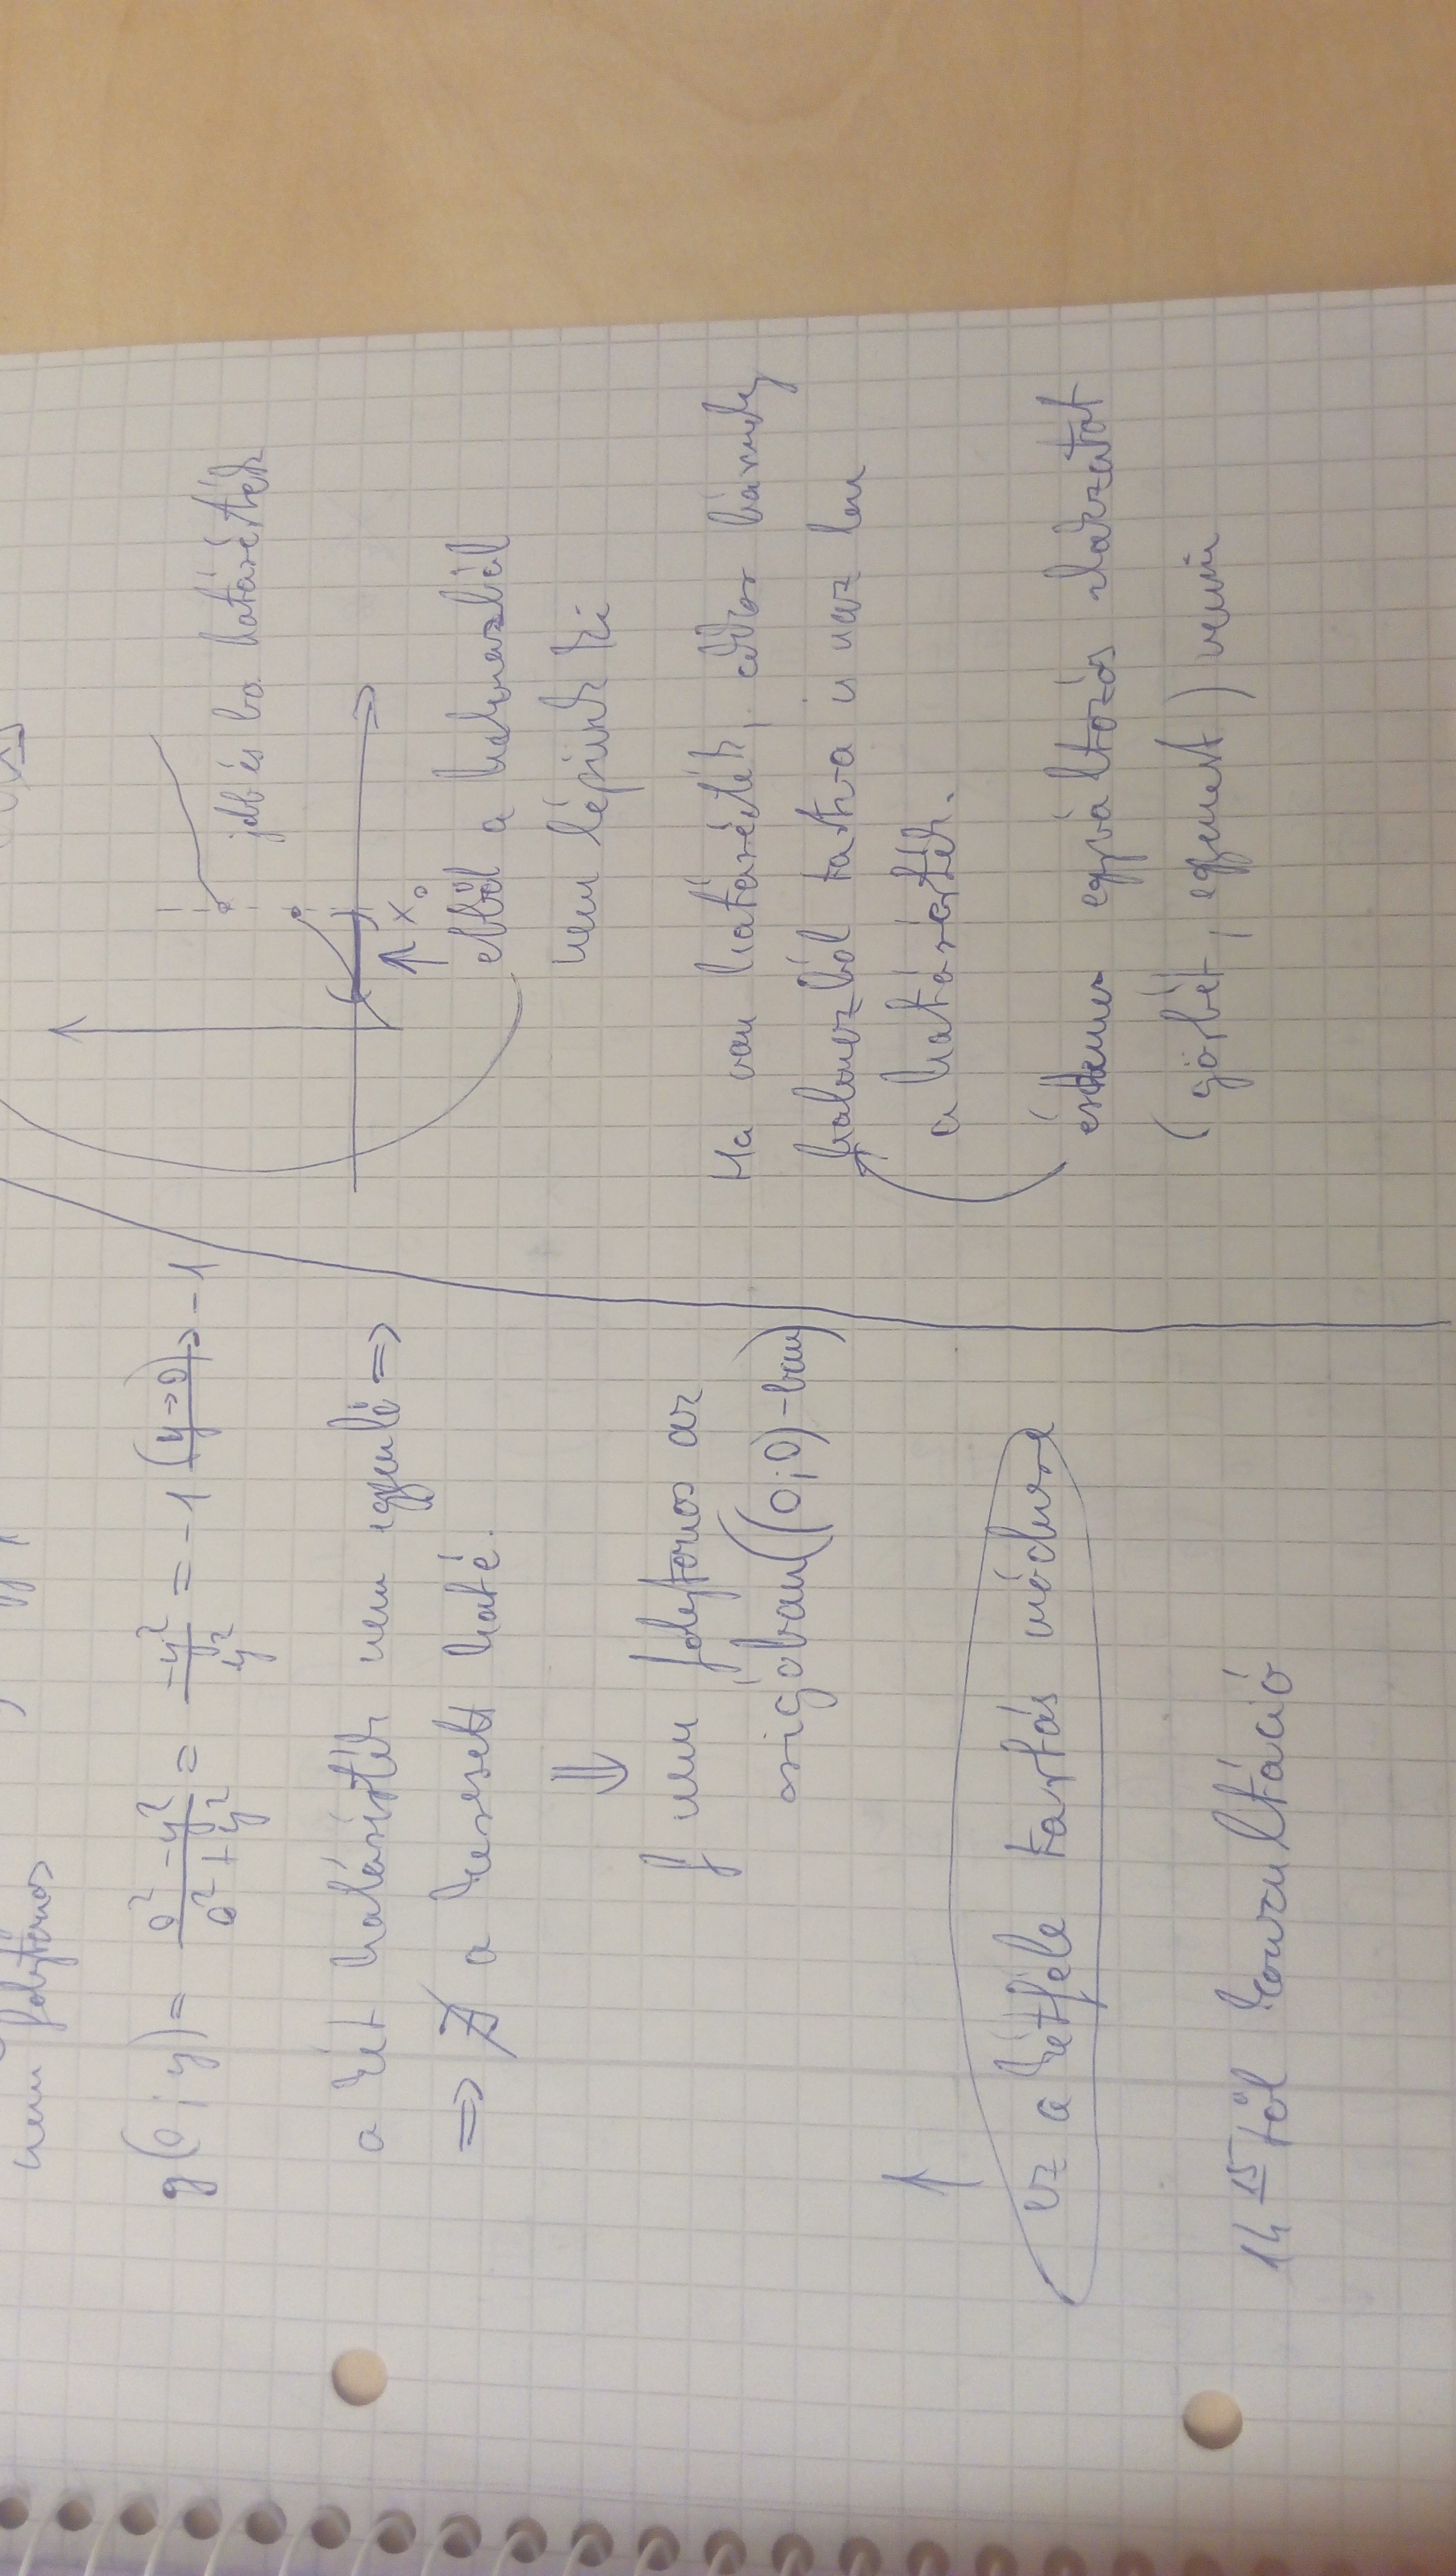 nem folytonos
g(0; y) = 0² - y² / 0² + y² = -y² / y² = -1 (y→0)→ -1
a két határérték nem egyenlő ⇒
⇒ ∄ a keresett haté.
⇓
f nem folytonos az
origóban ((0;0)-ban)
↑
ez a kétféle tartás módszere
14 15 től konzultáció
jobb és bal határérték
( )
↑ x₀
ebből a halmazból
nem lépünk ki
Ha van határérték, akkor bármely
halmazból tartva is az lesz
a határérték.
érdemes egyváltozós alakzatot
(görbét, egyenest) venni